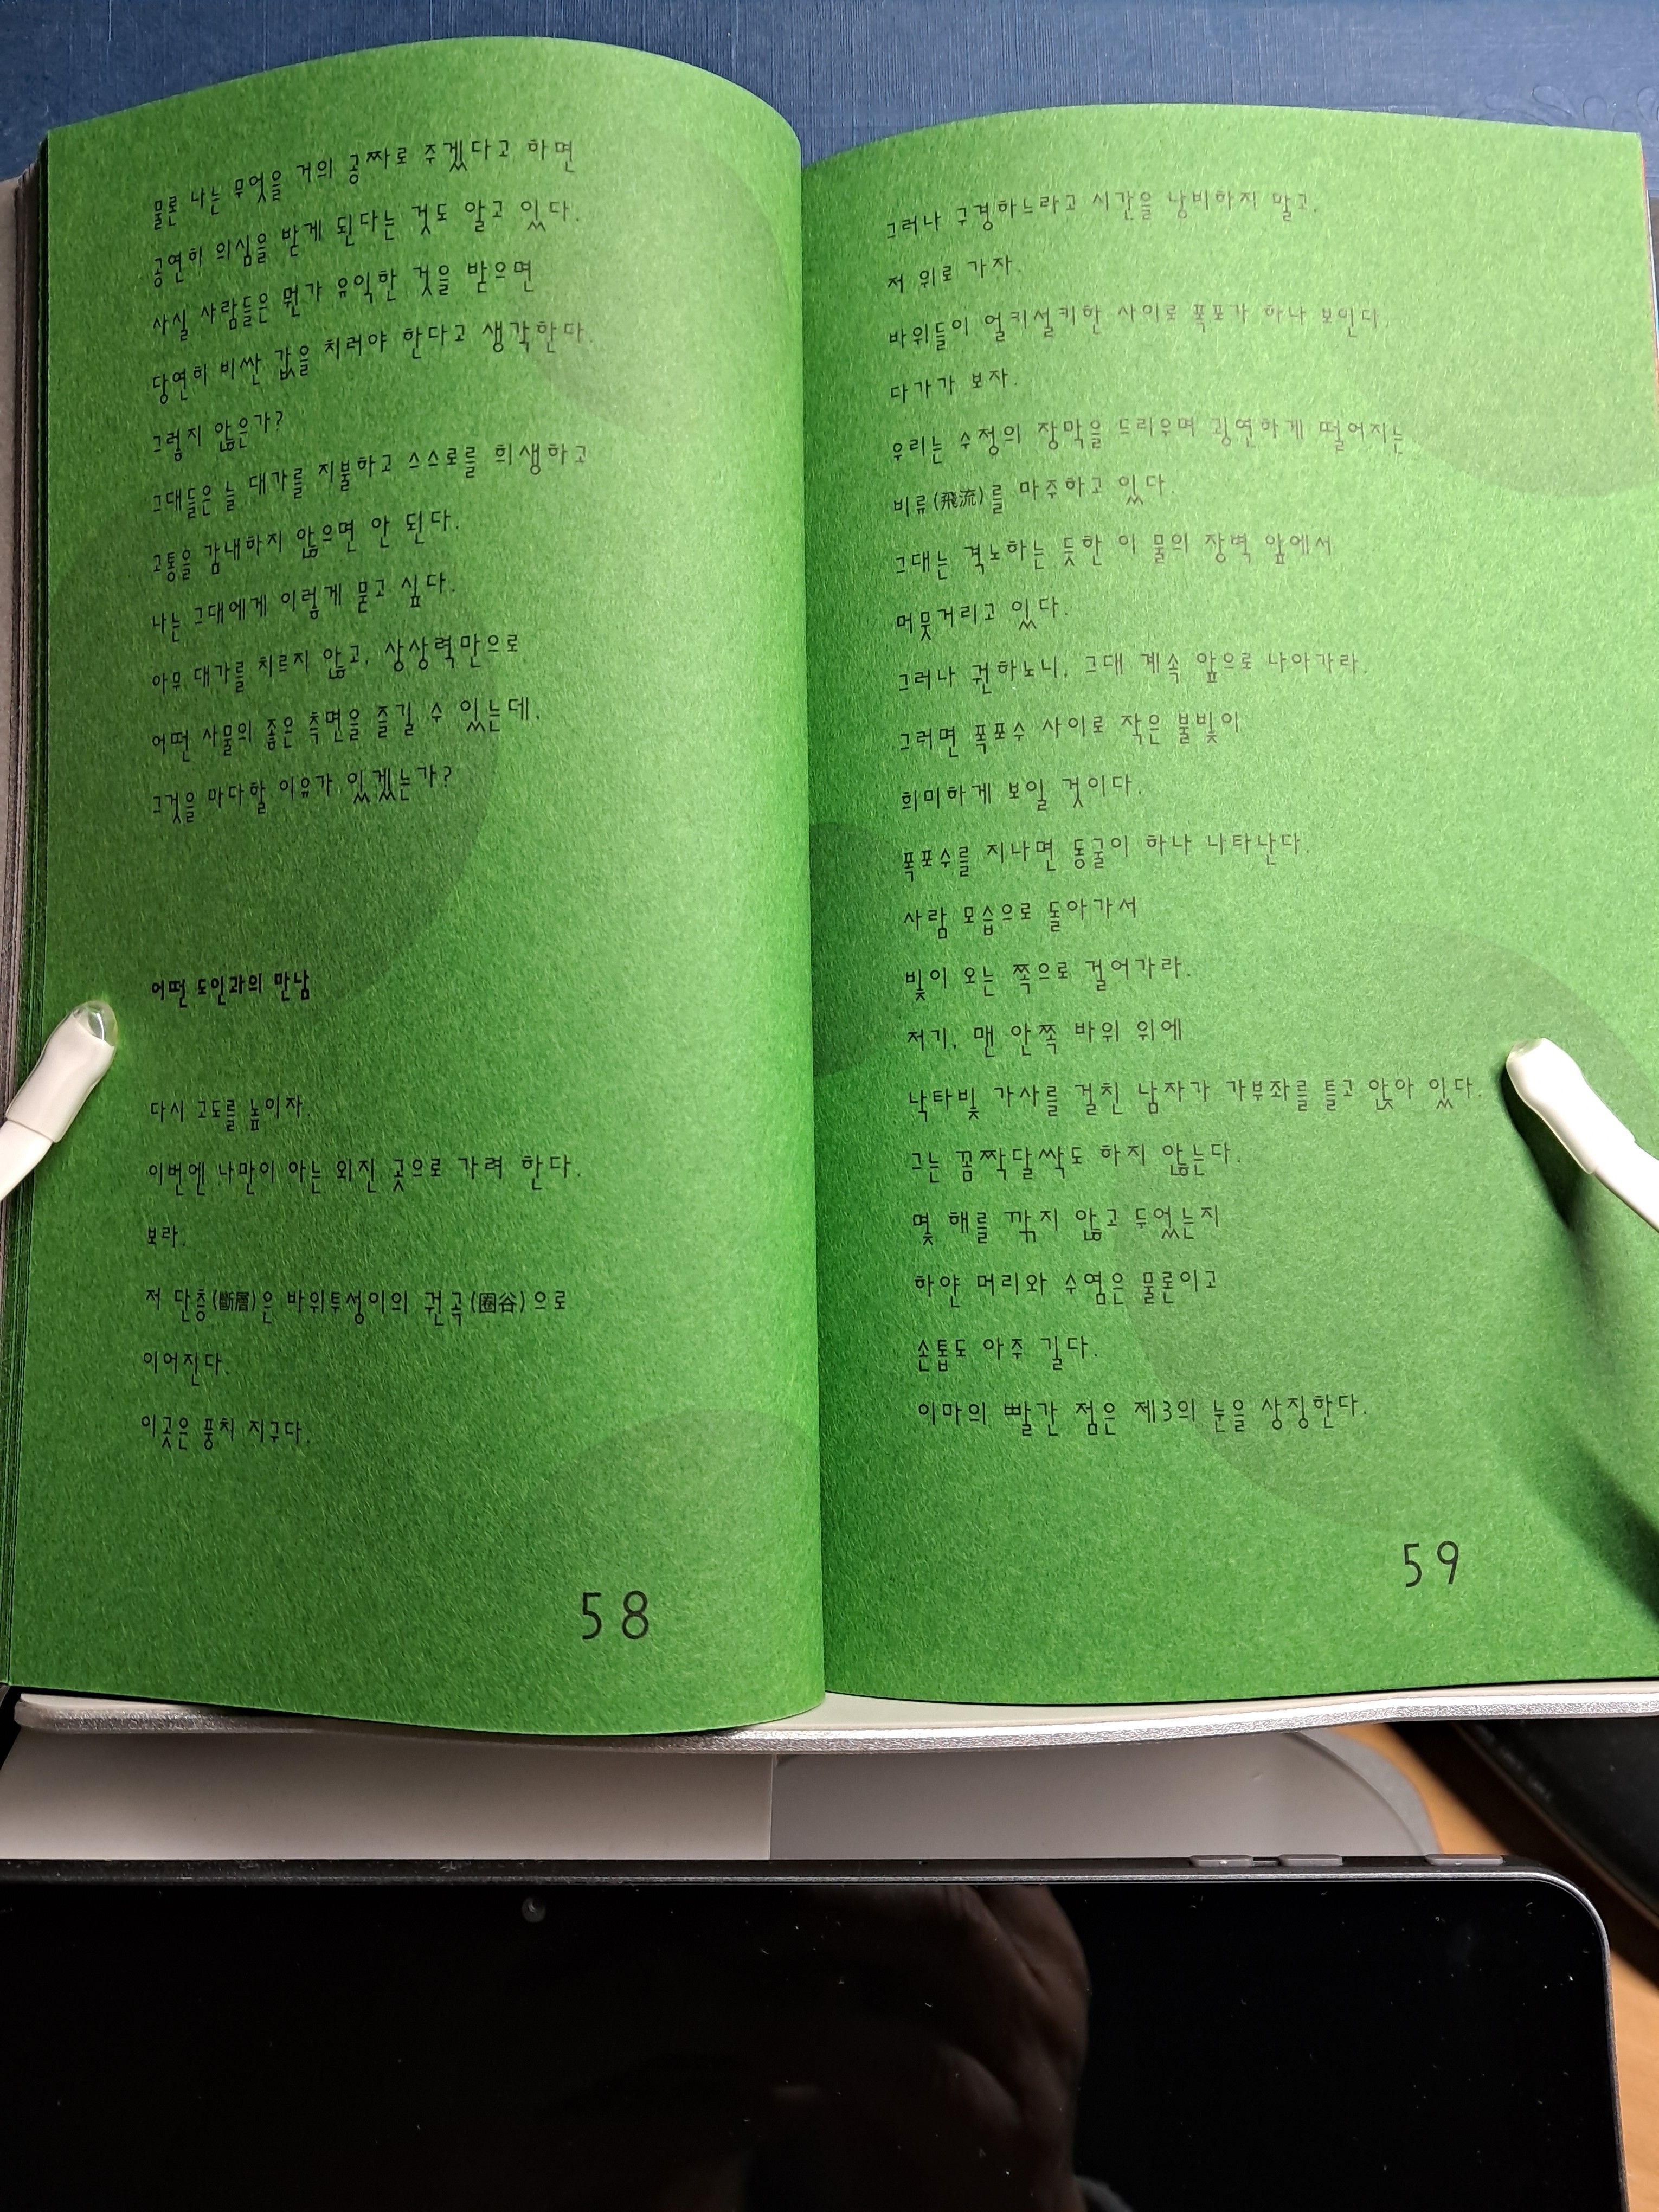 물론 나는 무엇을 거의 공짜로 주겠다고 하면
공연히 의심을 받게 된다는 것도 알고 있다.
사실 사람들은 뭔가 유익한 것을 받으면
당연히 비싼 값을 치러야 한다고 생각한다.
그렇지 않은가?
그대들은 늘 대가를 지불하고 스스로를 희생하고
고통을 감내하지 않으면 안 된다.
나는 그대에게 이렇게 묻고 싶다.
아무 대가를 치르지 않고, 상상력만으로
어떤 사물의 좋은 측면을 즐길 수 있는데,
그것을 마다할 이유가 있겠는가?
어떤 도인과의 만남
다시 고도를 높이자.
이번엔 나만이 아는 외진 곳으로 가려 한다.
보라.
저 단층(斷層)은 바위투성이의 권곡(圈谷)으로
이어진다.
이곳은 풍치 지구다.
58
그러나 구경하느라고 시간을 낭비하지 말고,
저 위로 가자.
바위들이 얼키설키한 사이로 폭포가 하나 보인다.
다가가 보자.
우리는 수정의 장막을 드리우며 굉연하게 떨어지는
비류(飛流)를 마주하고 있다.
그대는 격노하는 듯한 이 물의 장벽 앞에서
머뭇거리고 있다.
그러나 권하노니, 그대 계속 앞으로 나아가라.
그러면 폭포수 사이로 작은 불빛이
희미하게 보일 것이다.
폭포수를 지나면 동굴이 하나 나타난다.
사람 모습으로 돌아가서
빛이 오는 쪽으로 걸어가라.
저기, 맨 안쪽 바위 위에
낙타빛 가사를 걸친 남자가 가부좌를 틀고 앉아 있다.
그는 꼼짝달싹도 하지 않는다.
몇 해를 깎지 않고 두었는지
하얀 머리와 수염은 물론이고
손톱도 아주 길다.
이마의 빨간 점은 제3의 눈을 상징한다.
59